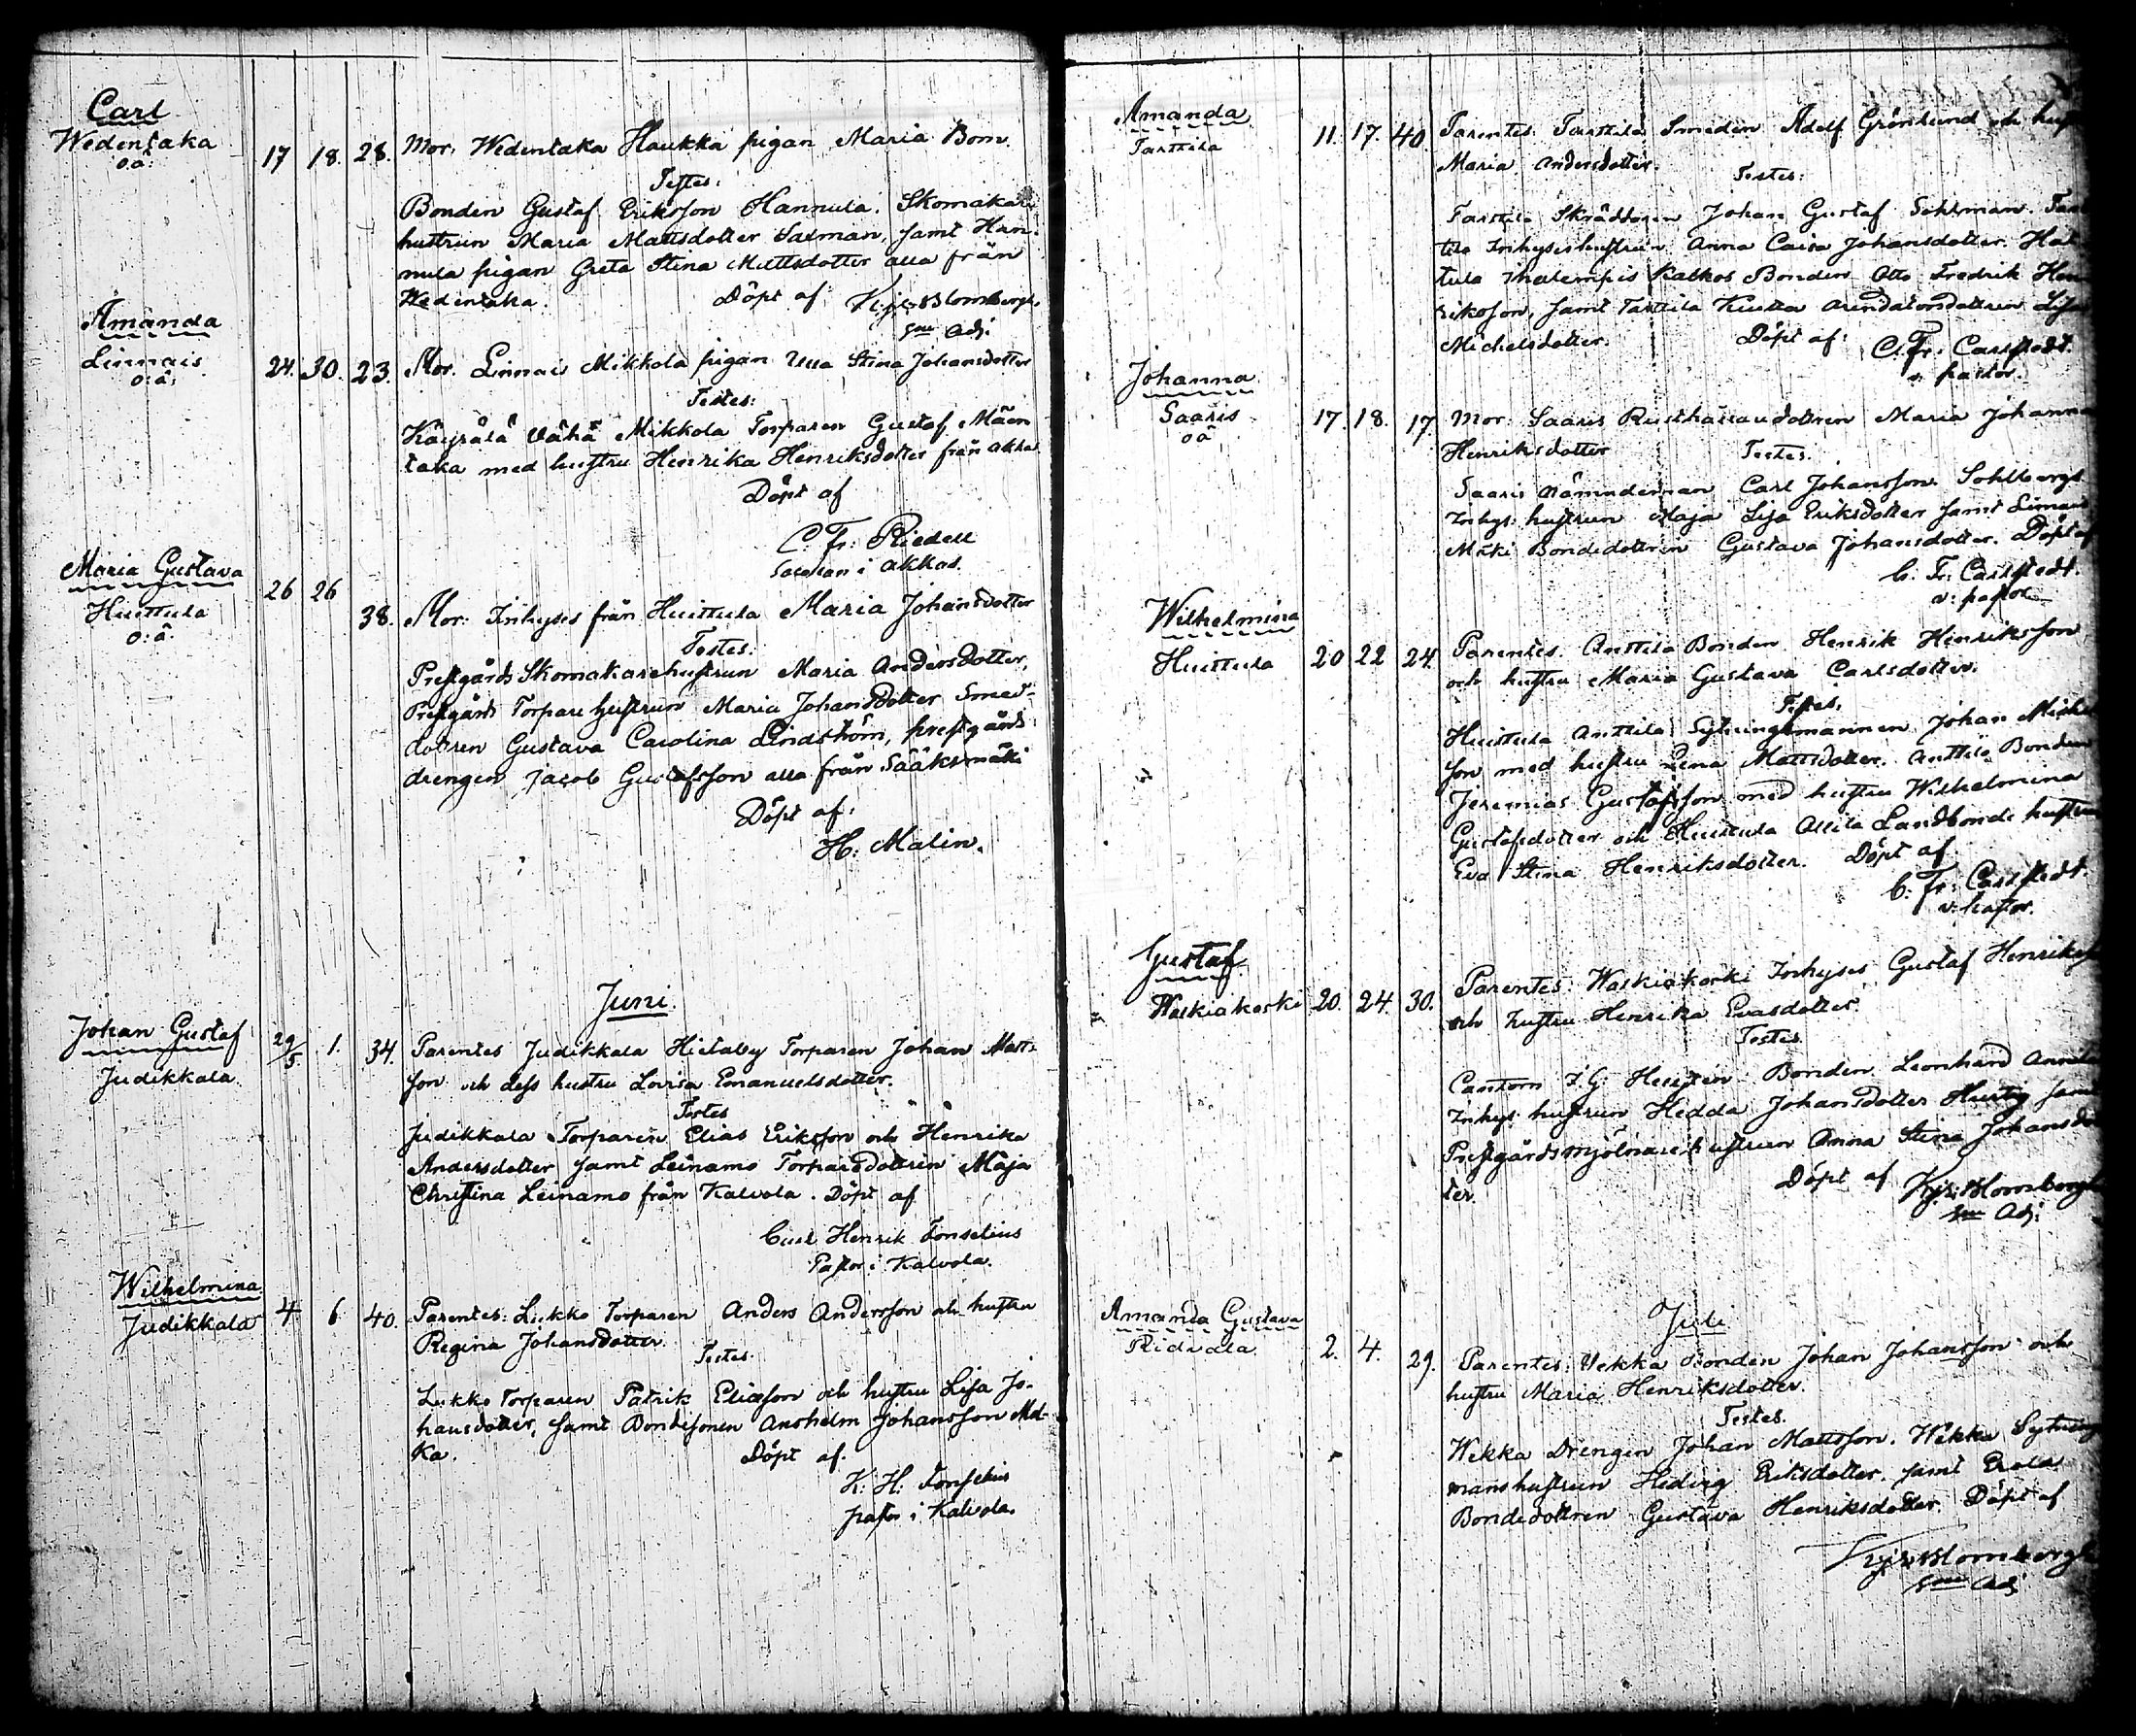 Carl
Wedentaka
o.ä.
17 18. 28. Mor. Wedentaka Haukka pigan Maria Bom.
Testes:
Bonden Gustaf Eriksson Hannula. Skomakare
hustrun Maria Mattsdotter Salman, samt Han-
nula pigan Greta Stina Mattsdotter alla från
Wedentaka. Döpt af Blombergh.
Adj.
Amanda
Linnais
o:ä:
24. 30. 23. Mor. Linnais Mikkola pigan Ulla Stina Johansdotter
Testes:
Käyrälä Vähä Mikkola Torparen Gustaf Mäen
taka med hustru Henrika Henriksdotter från Akkas
Döpt af
C. Fr. Riedell
i Akkas.
Maria Gustava
Huittula
o:ä.
26 26 38. Mor. Inhyses från Huittula Maria Johansdotter
Testes:
Prestgårds Skomakarehustrun Maria Andersdotter,
Prestgårds Torpare hustrun Maria Johansdotter Smed-
dottren Gustava Carolina Lindström, prestgårds
drengen Jacob Gustafsson alla från Sääksmäki
Döpt af:
H. Malin.
Juni.
Johan Gustaf
Judikkala
29/5. 1. 34. Parentes Judikkala Hietaby Torparen Johan Matts
son och dess hustru Lovisa Emanuelsdotter.
Testes
Judikkala Torparen Elias Eriksson och Henrika
Andersdotter samt Leinamo Torparedottren Maja
Christina Leinamo från Kalvola. Döpt af
Carl Henrik Fonselius
Pastor i Kalvola.
Wilhelmina
Judikkala
4 6 40. Parentes: Lukko Torparen Anders Andersson och hustru
Regina Johansdotter.
Testes.
Lukko Torparen Patrik Eliasson och hustru Lisa Jo-
hansdotter, samt Bondesonen Ansholm Johansson
ka. Döpt af.
K. H. Fonselius
pastor i Kalvola.
Amanda
Tarttila
11. 17. 40. Parentes Tarttila Smeden Adolf Grönlund och
Maria Andersdotter.
Testes:
Tarttila Skräddaren Johan Gustaf Sohlman.
tila Inhyseshustrun Anna Caisa Johansdotter.
tula Kalkos Bonden Otto Fredrik Hen
riksson, samt Tarttila Arendatorsdottren Lisa
Michelsdotter. Döpt af: C. Fr. Carlstedt.
v. pastor.
Johanna
Saaris
o ä
17. 18. 17 Mor. Saaris Rusthållaredottren Maria Johanna
Henriksdotter Testes.
Saaris Nämndeman Carl Johansson Sohlberg
Inhys. hustrun Maja Lisa Eriksdotter samt
Mäki Bondedottren Gustava Johansdotter. Döpt af
C. Fr. Carlstedt.
v. pastor
Wilhelmina
Huittula
20 22 24. Parentes. Anttila Bonden Henrik Henriksson
och hustru Maria Gustava Carlsdotter.
Testes.
Huittula Anttila Sytningsmannen Johan
son med hustru Lena Mattsdotter. Anttila Bonden
Jeremias Gustafsson med hustru Wilhelmina
Gustafsdotter och Huittula Ollila Landbonde hustrun
Eva Stina Henriksdotter. Döpt af
C. Fr. Carlstedt.
v. pastor.
Gustaf
Waskiakoski
20. 24 30. Parentes: Waskiakoski Inhyses Gustaf
och hustru Henrika Evasdotter.
Testes.
Cantorn Bonden Leonhard
Inhys. hustrun Hedda Johansdotter
Prestgårds mjölnare hustrun Anna Stina
ter. Döpt af Blombergh
Adj.
Juli
Amanda Gustava
Ridvala
2. 4. 29. Parentes: Wekka Bonden Johan Johansson och
hustru Maria Henriksdotter.
Testes.
Wekka Drengen Johan Mattsson. Wekka Sytnings
manshustrun Hedvig Eriksdotter. samt Erola
Bondedottren Gustava Henriksdotter. Döpt af
Blombergh
Adj